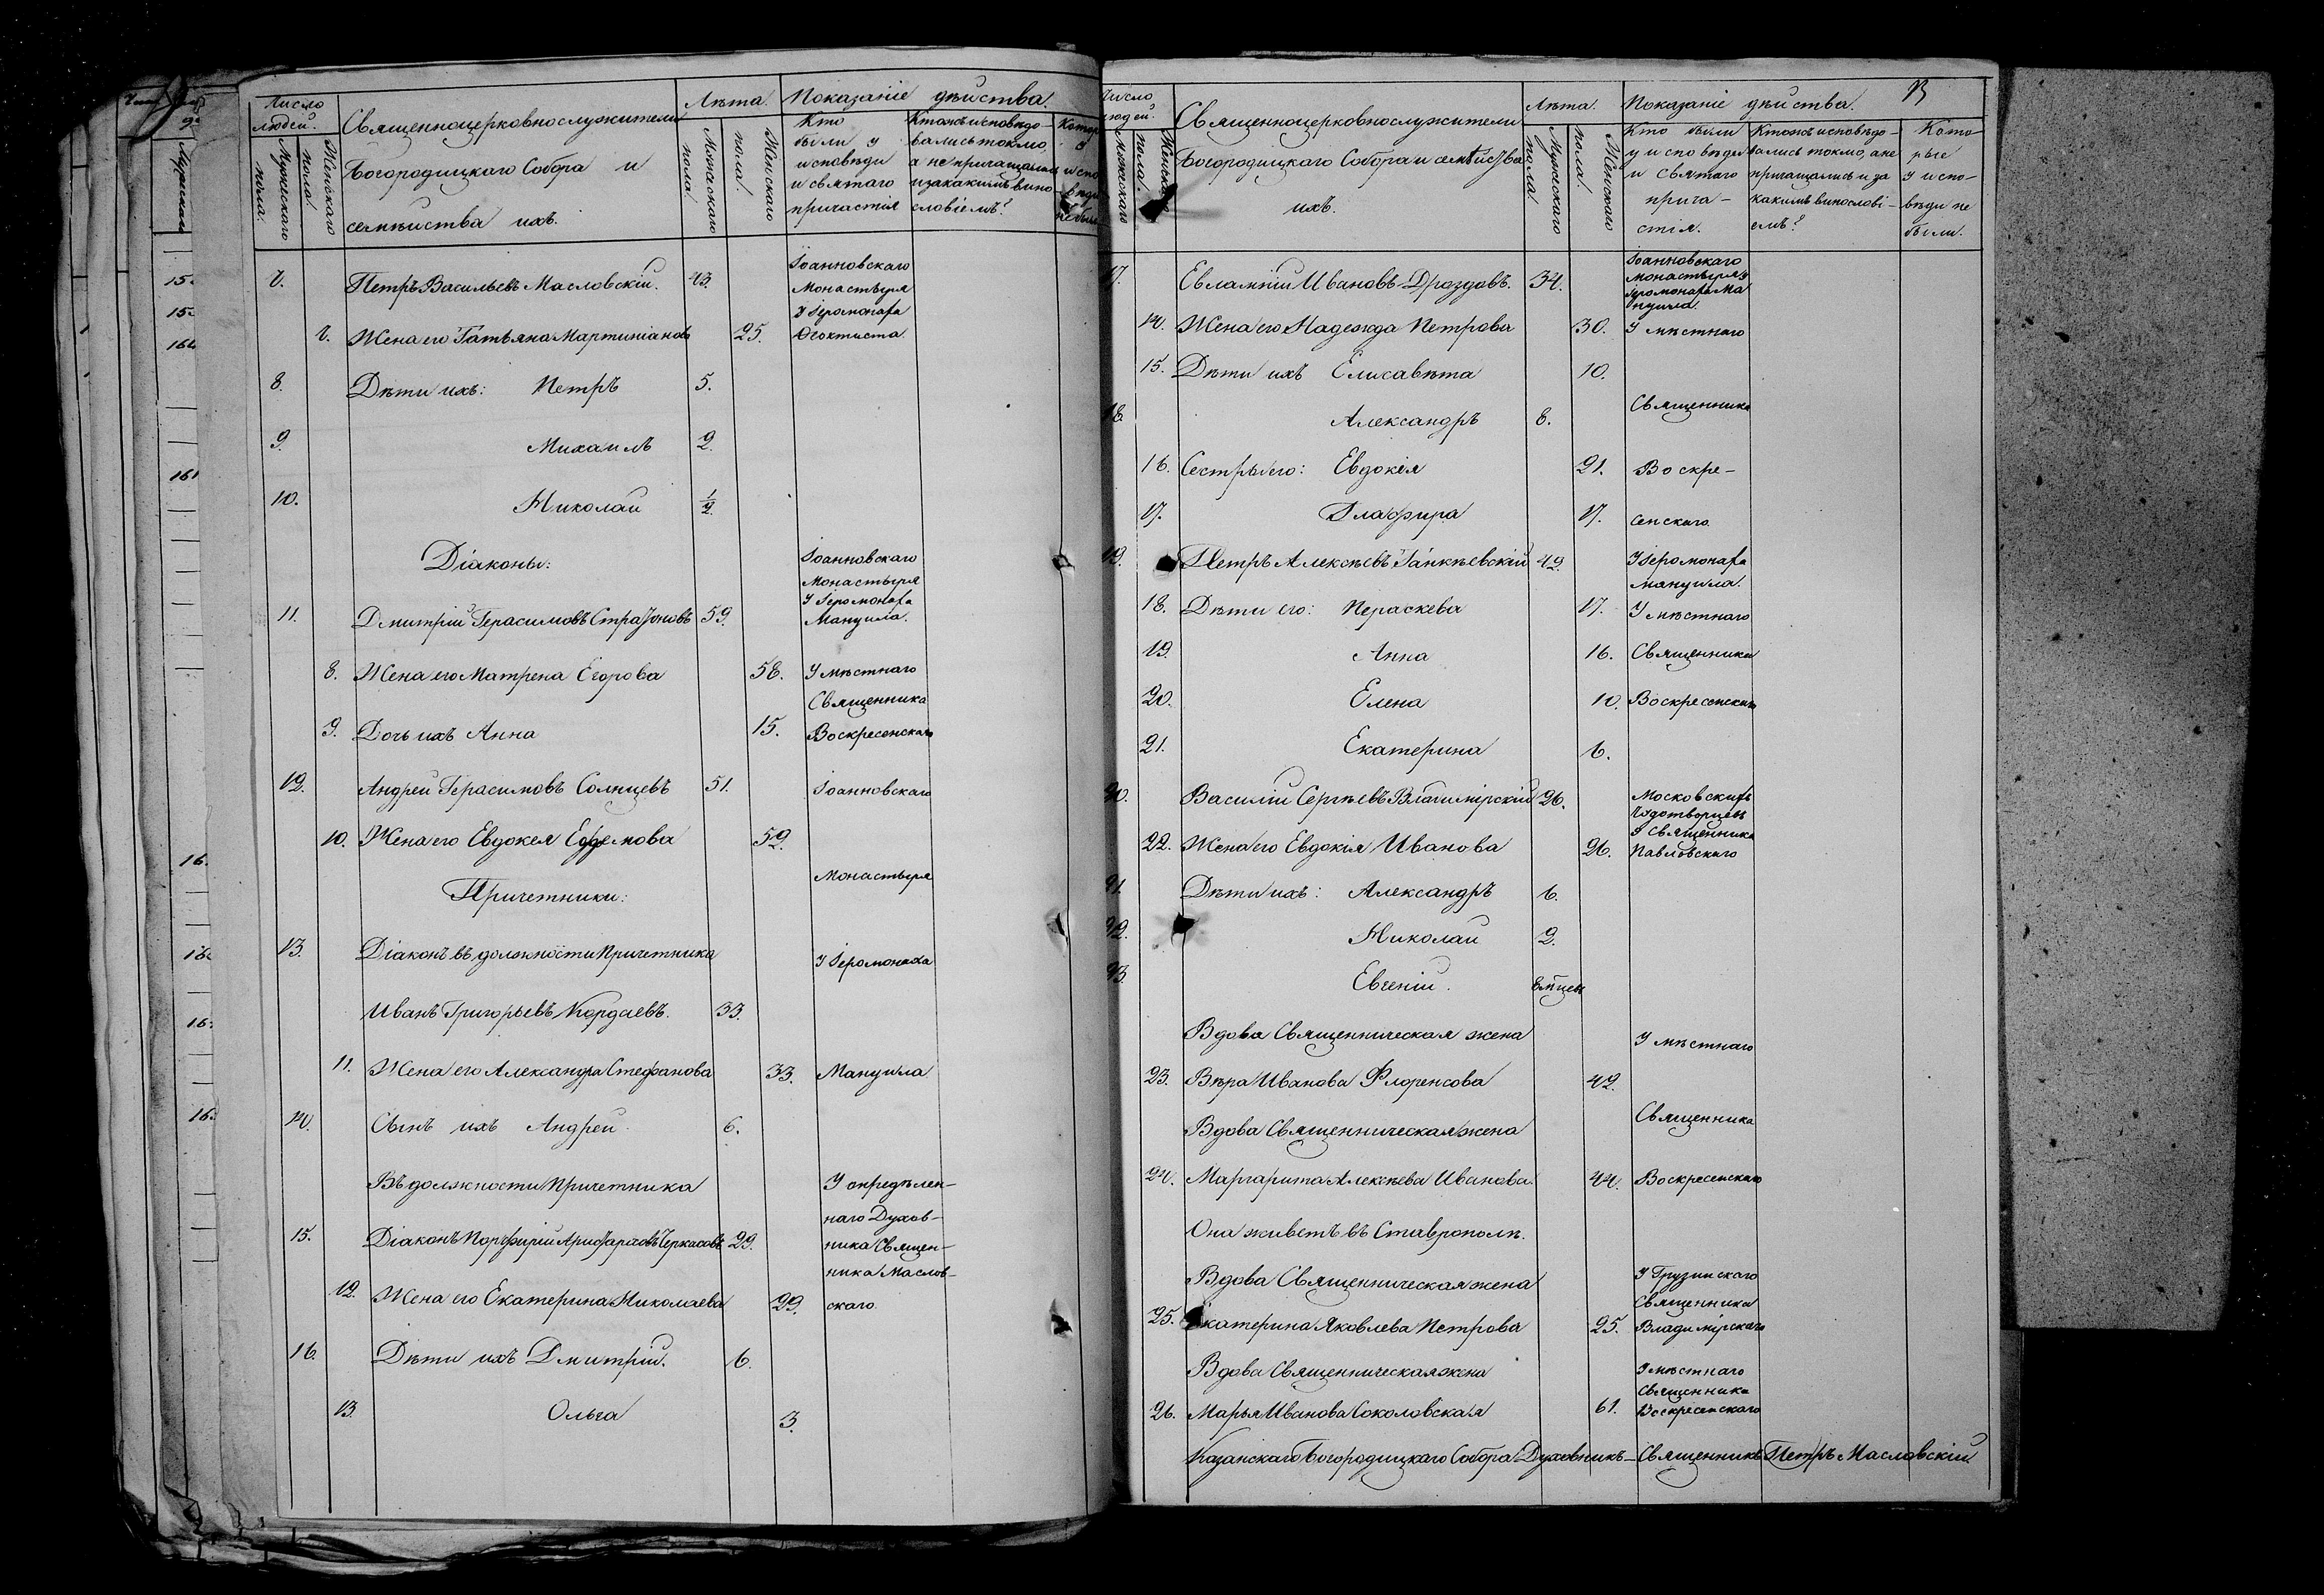 Число людей.
Мужескаго пола.
Женскаго пола.
Священноцерковнослужители
Богородицкаго Собора и
семѣйства ихъ.
Лѣта.
Мужескаго пола.
Женскаго пола.
Показаніе дѣйства.
Кто были у исповѣди и святаго причастія
Ктожъ исповѣдовались токмо, а не причащались и за какимъ винословіемъ?
7. Петръ Васильевъ Масловскій. 43. Іоанновскаго
Монастыря
У Іеромонаха
7. Жена его Татьяна Мартиніанов 25. Ѳеоктиста.
8. Дѣти ихъ: Петръ 5.
9. Михаилъ 2.
10. Николай 1/2.
Діаконы:
Іоанновскаго
Монастыря
У Іеромонаха
11. Дмитрій Герасимовъ Страхоновъ 59. Мануила.
8. Жена его Матрена Егорова 58. У мѣстнаго
Священника
9. Дочь ихъ Анна 15. Воскресенскаго
12. Андрей Герасимовъ Солнцевъ 51. Іоанновскаго
10. Жена его Евдокея Ефремова 52.
Монастыря
Причетники:
13. Діаконъ въ должности Причетника
У Іеромонаха
Иванъ Григорьевъ Кордаевъ. 33.
11. Жена его Александра Стефанова 33. Мануила
14. Сынъ ихъ Андрей 6.
Въ должности Причетника У опредѣлен-
наго Духов-
15. Діаконъ Порфирій Черкасовъ 29. ника Священ-
ника Маслов-
12. Жена его Екатерина Николаева 29. скаго.
16. Дѣти ихъ Дмитрій. 6.
13. Ольга 3.
Число людей.
Мужескаго
Женскаго пола.
Священноцерковнослужители
Богородицкаго Собора и семѣйства
ихъ.
Лѣта.
Мужескаго пола.
Женскаго пола.
Показаніе дѣйства.
13
Кто были у исповѣди и Святаго прича-стія.
Ктожъ исповѣдо-вались токмо, а не причащались и за какимъ винослові-емъ?
Кото-рые у испо-вѣди не были.
17. Евлампій Ивановъ Дроздовъ. 34. Іоанновскаго
Монастыря у
Іеромонаха Ма
нуила.
14. Жена его Надежда Петрова 30. У мѣстнаго
15. Дѣти ихъ Елисавѣта 10.
Священника
18. Александръ 8.
16. Сестры его: Евдокія 21. Воскре-
17. Глафира 17. сенскаго.
19. Петръ Алексѣевъ 42. У Іеромонаха
Мануила.
18. Дѣти его: Пераскева 17. У мѣстнаго
19. Анна 16. Священника
20. Елена 10. Воскресенскаго
21. Екатерина 6.
20. Василій Сергѣевъ Владимірскій 26. Московскихъ
Чудотворцевъ
У Священника
22. Жена его Евдокія Иванова 26. Павловскаго
21. Дѣти ихъ: Александръ 6.
22. Николай 2.
23. Евгеній.
Вдова Священническая жена У мѣстнаго
23. Вѣра Иванова Флоренсова 42.
Священника
Вдова Священническая жена
24. Маргарита Алексѣева Иванова. 44. Воскресенскаго
Она живетъ въ Ставрополѣ.
Вдова Священническая жена У Грузинскаго
Священника
25. Екатерина Яковлева Петрова 25. Владимірскаго
Вдова Священническая жена У мѣстнаго
Священника
26. Марья Иванова Соколовская 61. Воскресенскаго
Казанскаго Богородицкаго Собора Духовникъ – Священникъ Петръ Масловскій